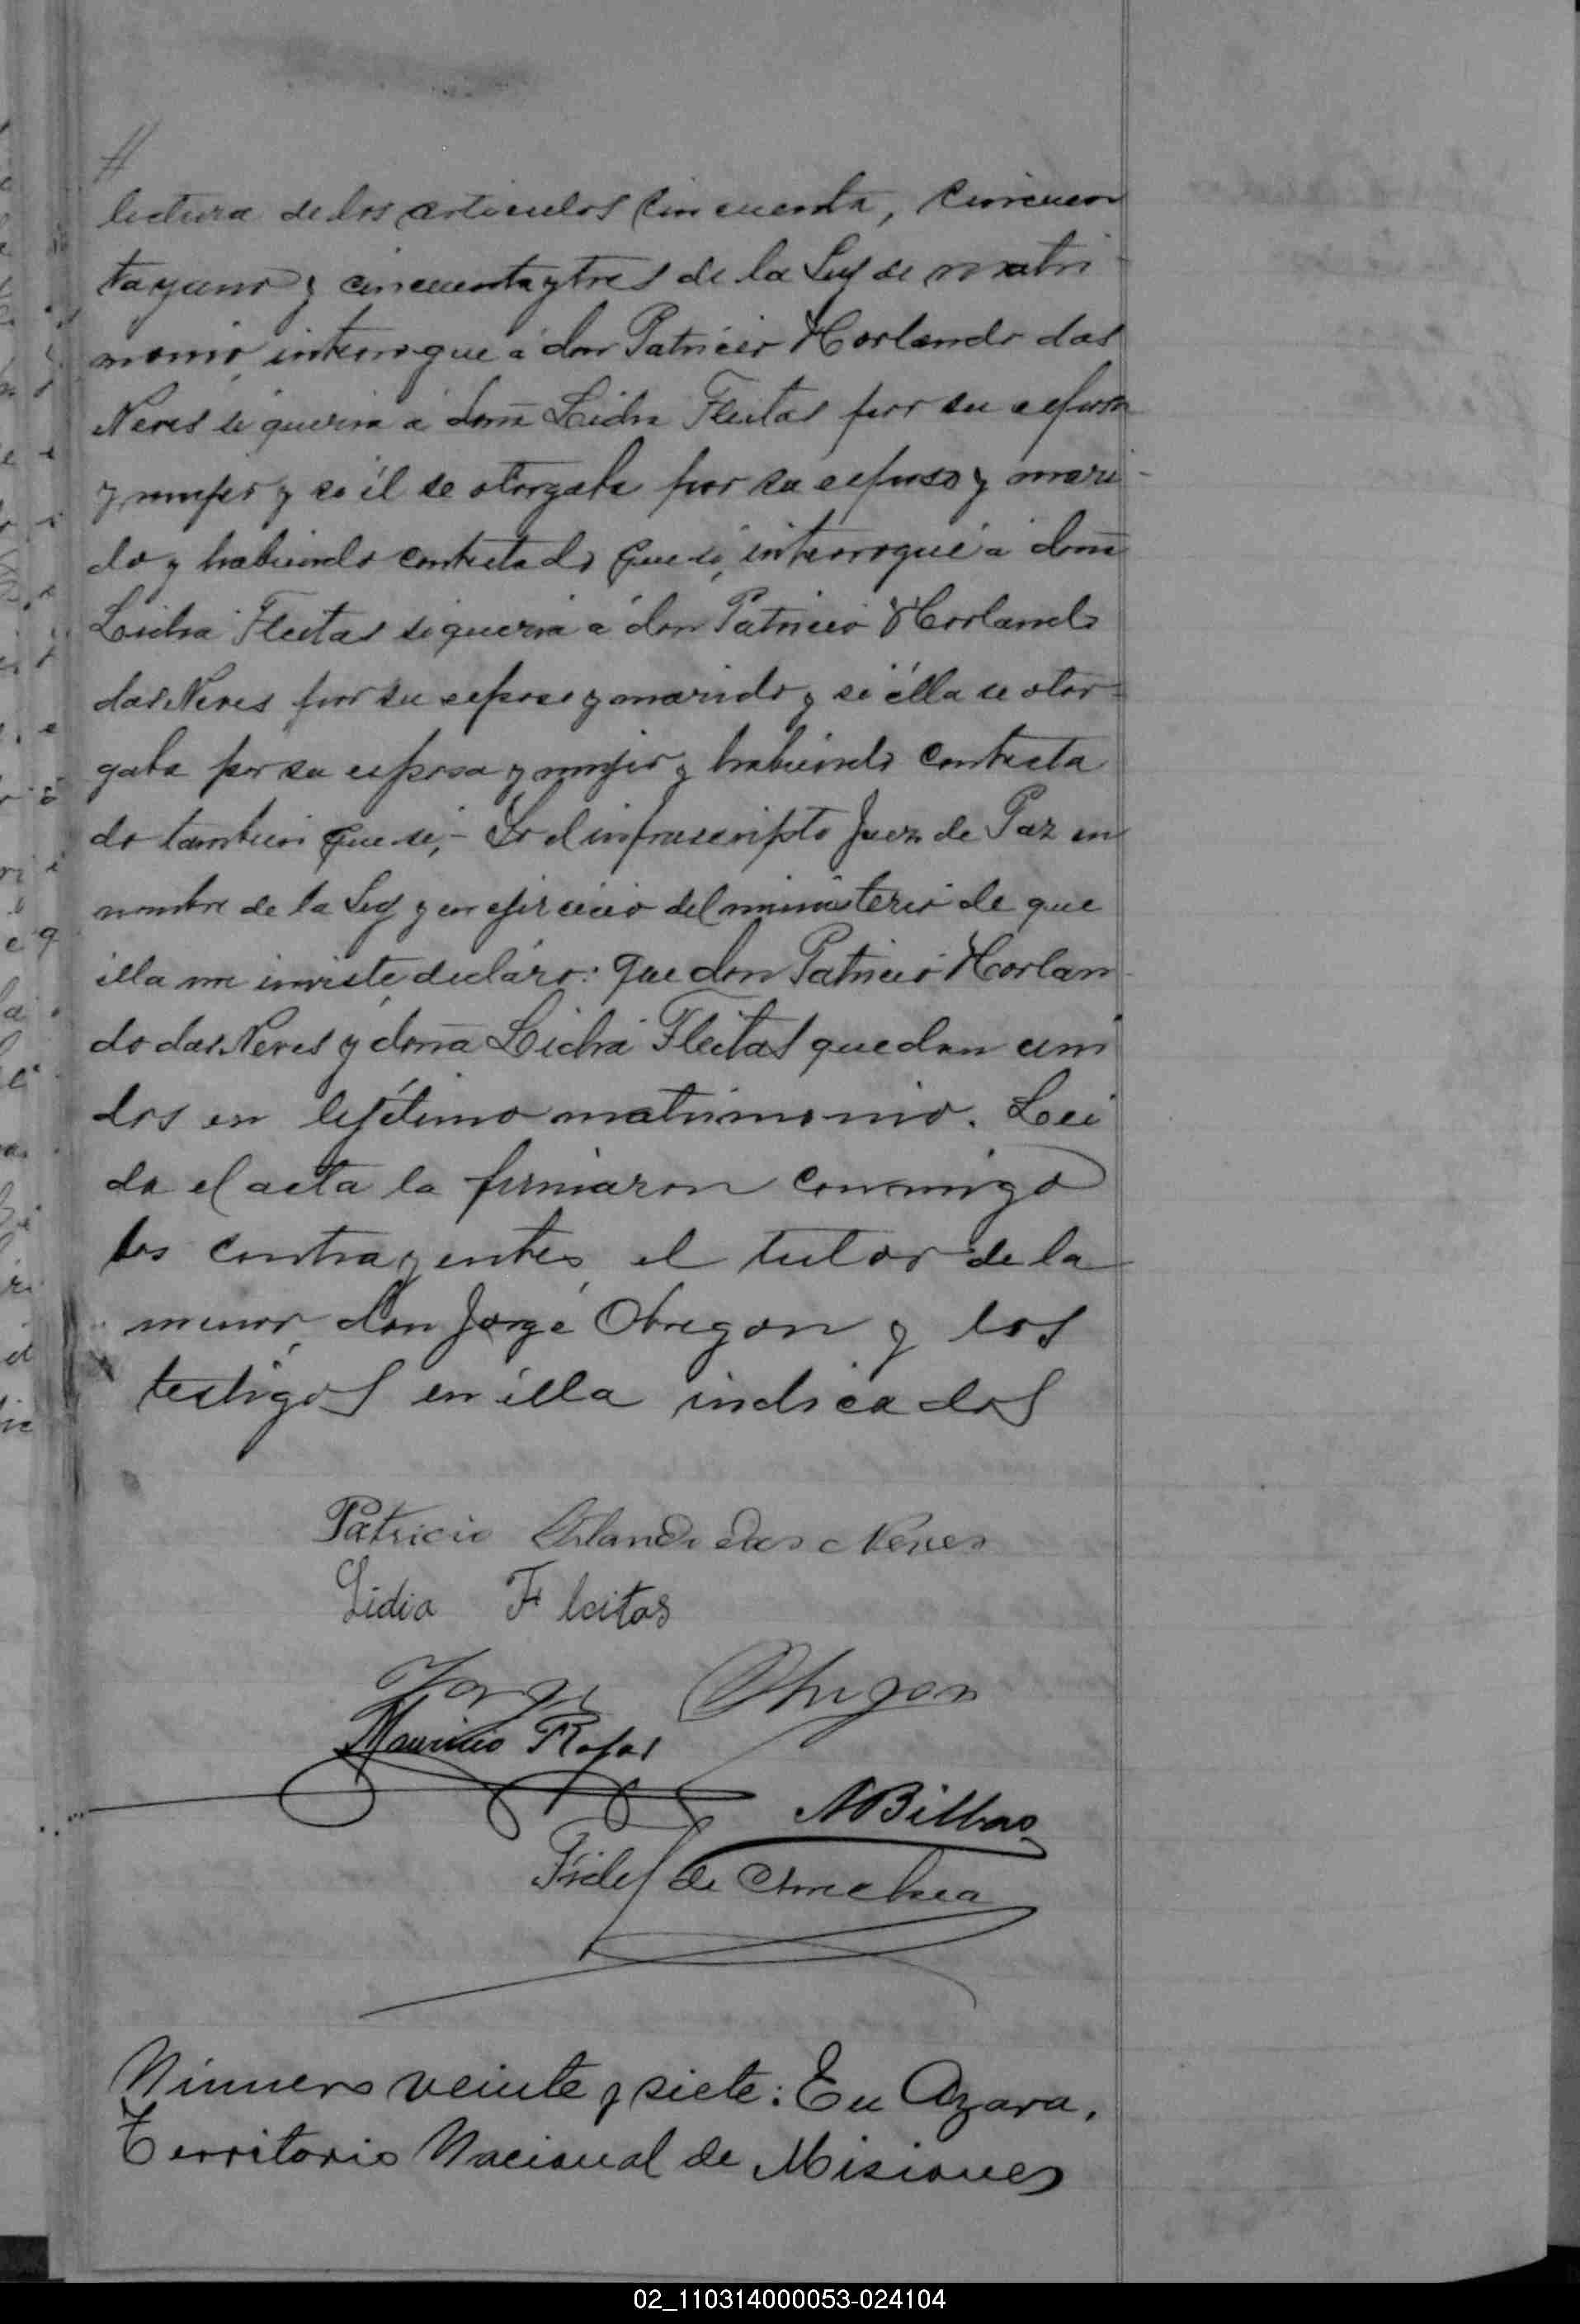 //
lectura de los articulos cincuenta, cincuen
tayuno y cincuentaytres de la Ley de matri-
monio, interrogue á don Patricio Horlando das
Neves si queria á doña Lidia Fleitas por su esposa
y mujer y si él se otorgaba por su esposo y mari-
do y habiendo contestado que si, interrogué á doña
Lidia Fleitas si queria á don Patricio Horlando
das Neves por su esposo y marido y si élla se otor-
gaba por su esposa y mujer y habiendo contesta
do tambien que si,- Yo el infrascripto Juez de Paz en
nombre de la Ley y en ejercicio del ministerio de que
élla me inviste, decláro: que don Patricio Horlan-
do das Neves y doña Lidia Fleitas quedan uni
dos en lejítimo matrimonio. Lei
da el acta la firmaron conmigo
los contrayentes, el tutor de la
menor, don Jorgé Obregon y los
testigos en élla indicados
Patricio Orlando das Neves
Lidia Fleitas
Jorge Obregon
Mauricio Rojas
NBilbao
Fidel de Amechea
Número veinte y siete: En Azara,
Territorio Nacional de Misiones
02_110314000053-024104